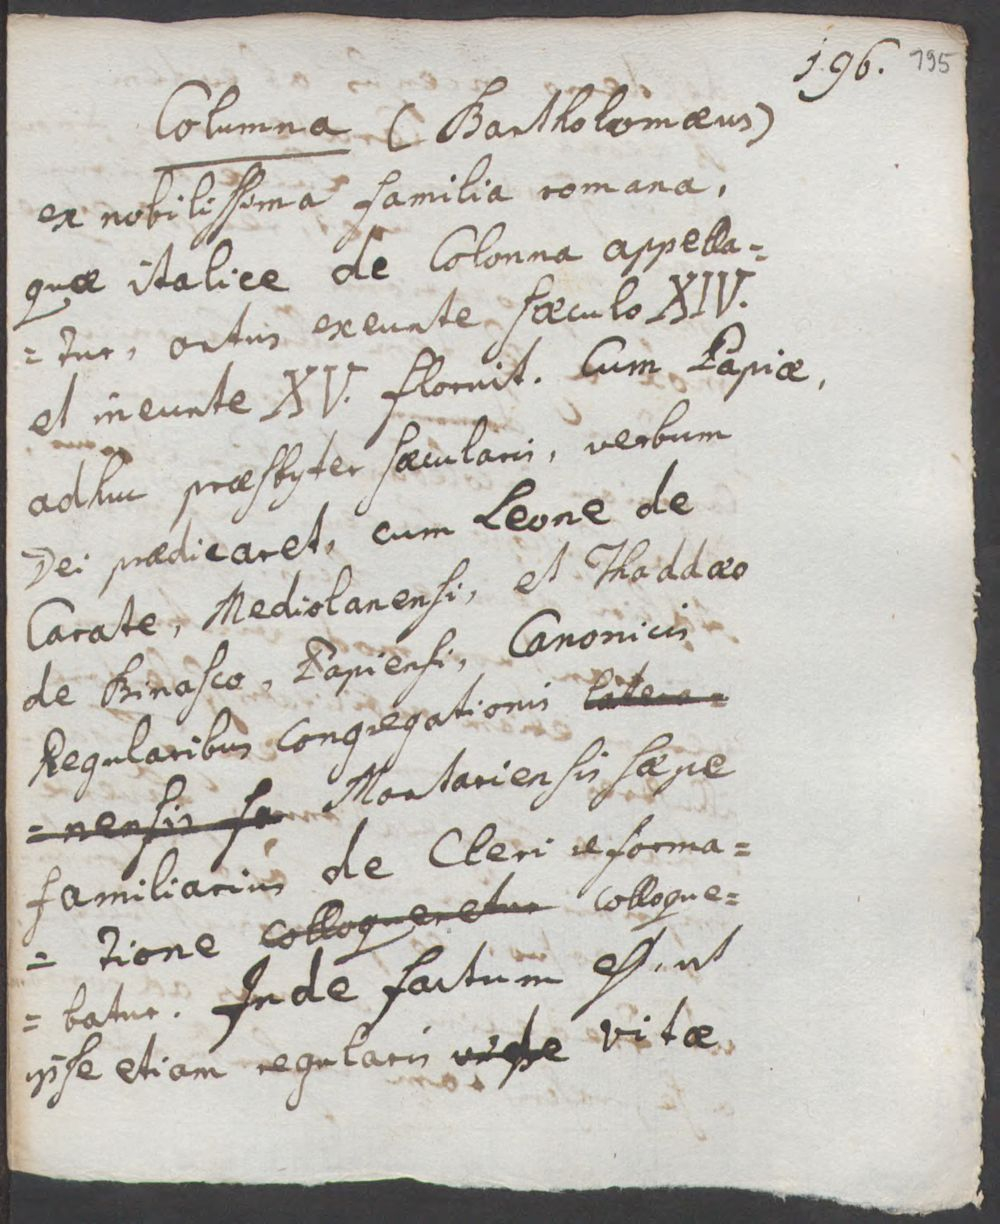 196. 195
Columna (Bartholomæus)
ex nobilissima familia romana,
quæ italice de Colonna appella=
=tur, ortus exeunte sæculo XIV.
et ineunte XV. floruit. Cum Papiæ,
adhuc præsbyter sæcularis, verbum
Dei prædicaret, cum Leone de
Carate, Mediolanensi, et Thaddæo
de Binasco, Papiensi, Canonicis
Regularibus Congregationis latera=
=nensis sa Mortariensis sæpe
familiarius de Cleri reforma=
=tione colloqueretur colloque=
=batur. Inde factum est, ut
ipse etiam regularis vitæ